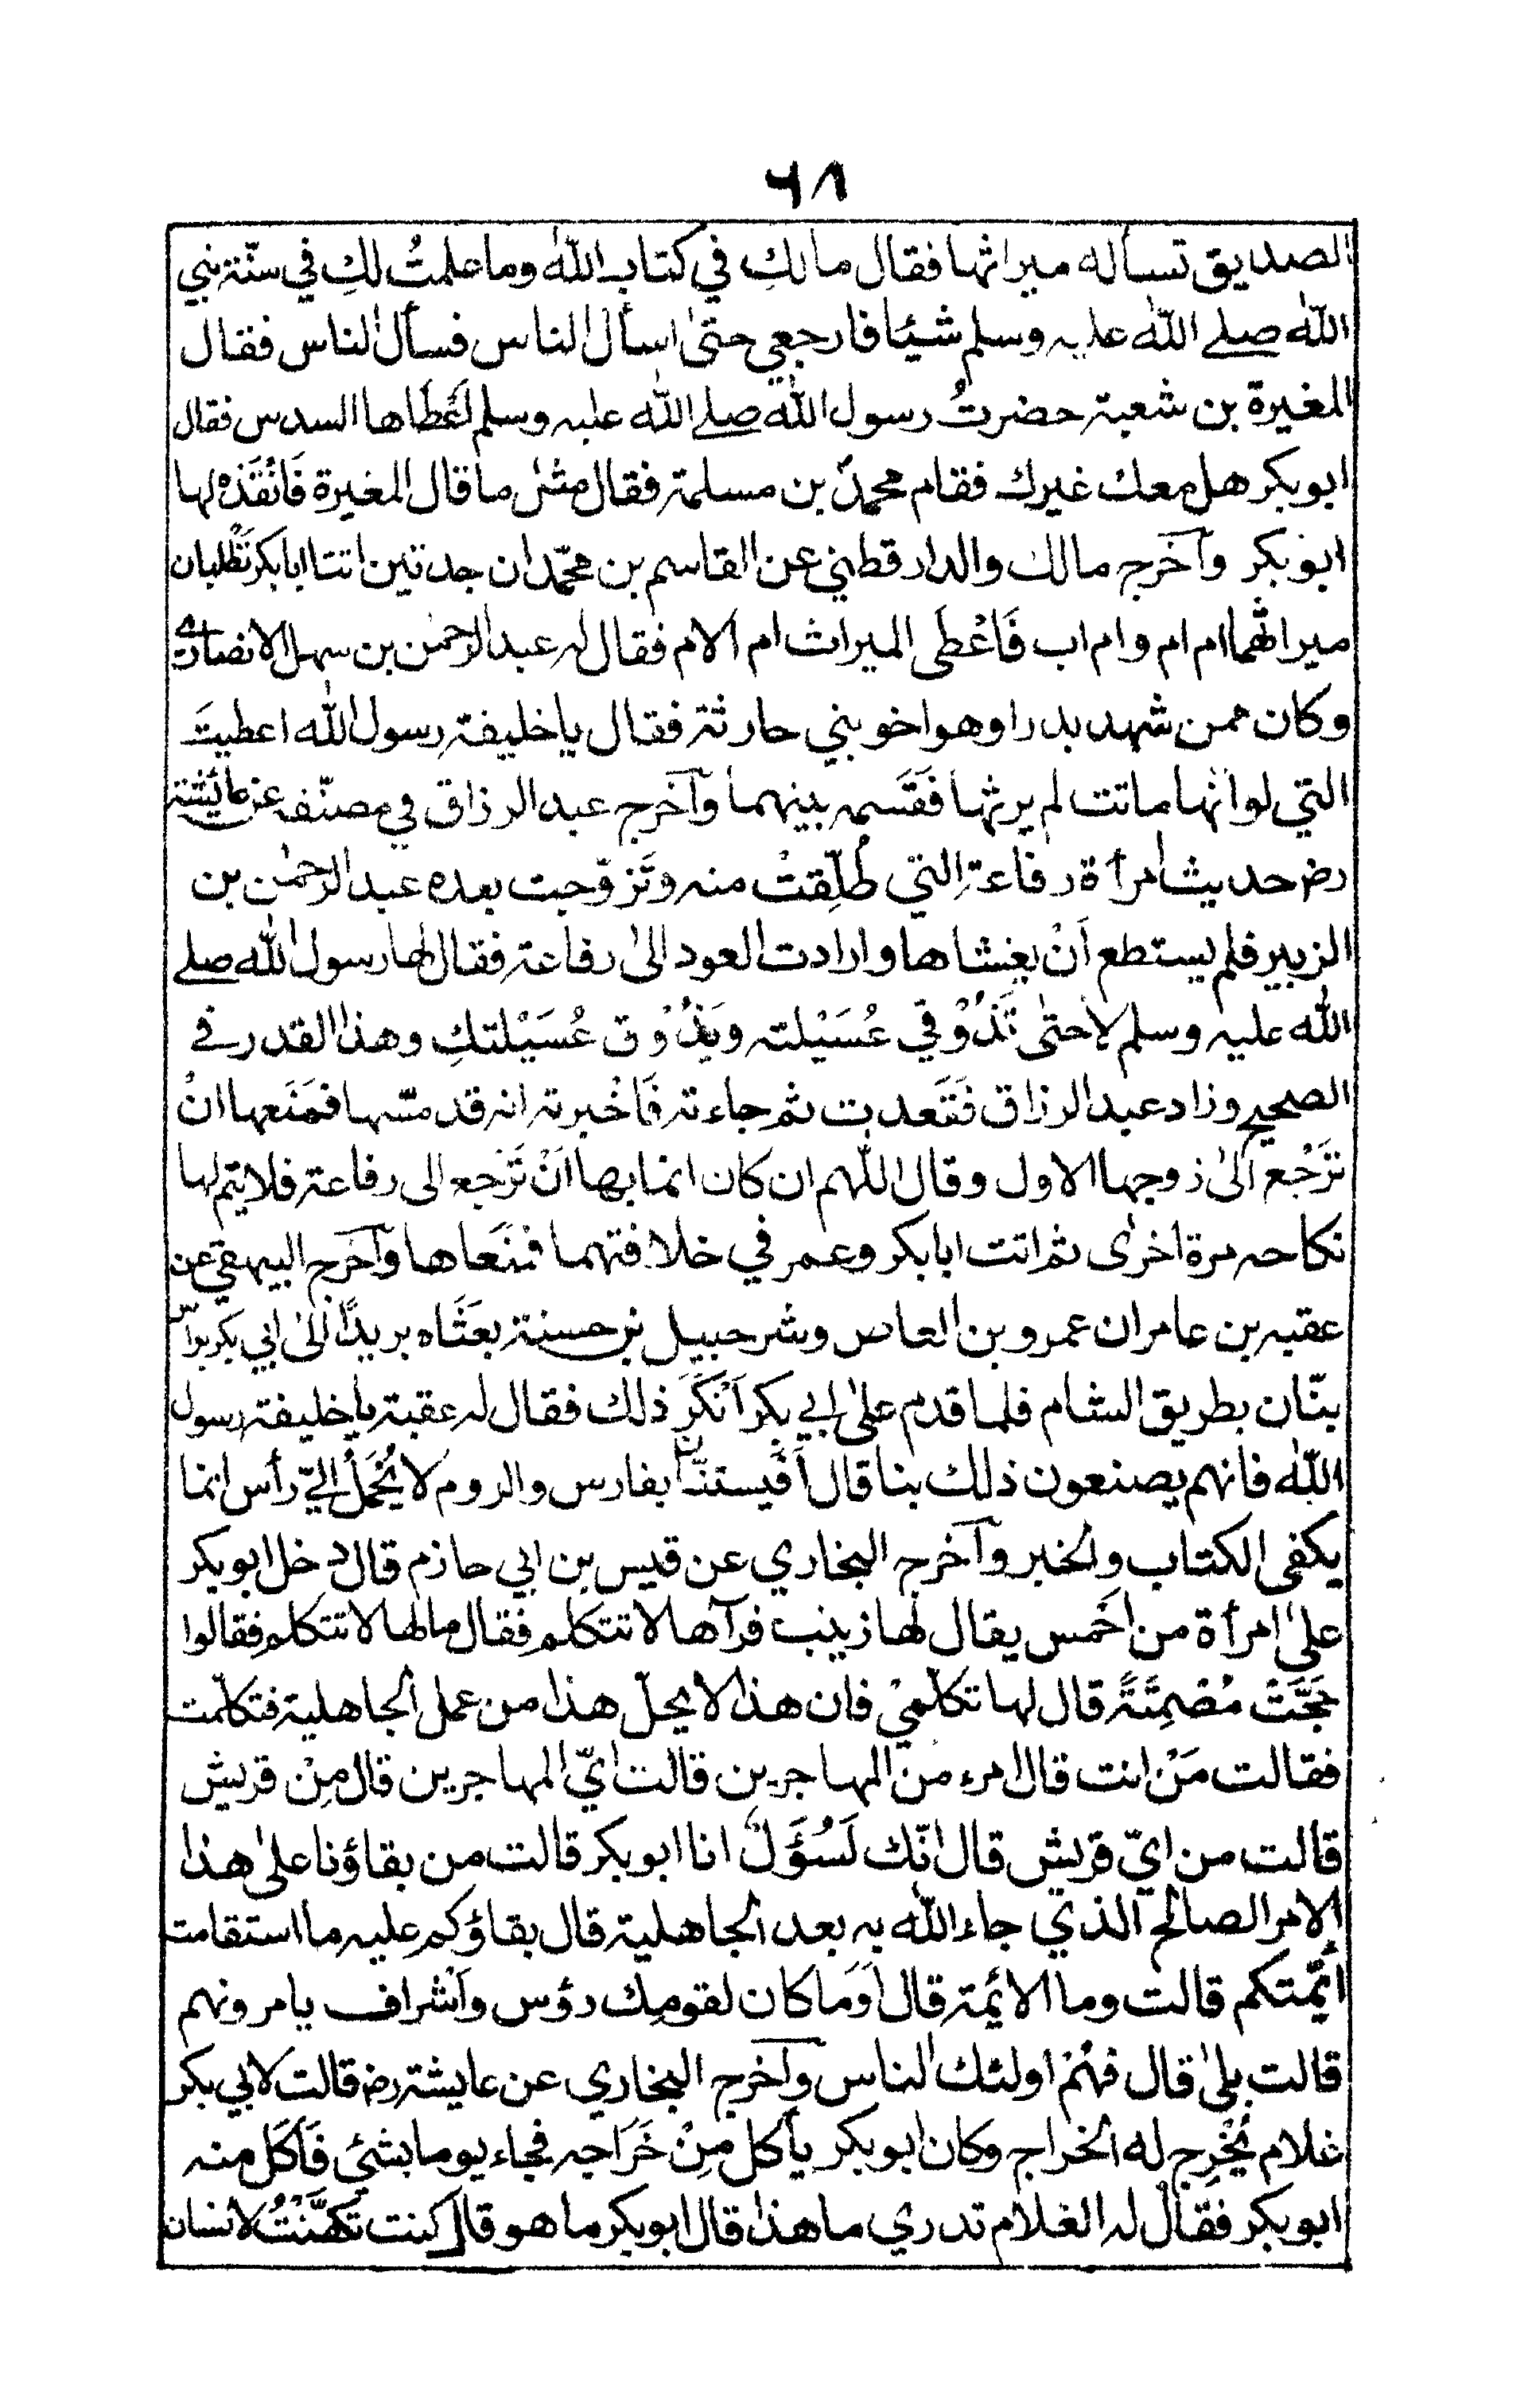 ٦٨
الصديق تسأله ميراثها فقال مالكِ في كتاب الله وما علمتُ لكِ في سنّة نبي
الله صلے الله عليه وسلم شيئا فارجعي حتىٰ اسأل الناس فسأل الناس فقال
المغيرة بن شعبة حضرتُ رسول الله صلے الله عليه وسلم أَعْطَاها السدس فقال
ابوبكر هل معك غيرك فقام محمدُ بن مسلمة فقال مثل ما قال المغيرة فَأَنْفَذه لها
ابوبكر وآخرج مالك والدارقطني عن القاسم بن محمّد ان جدتين اتتا ابا بكر تَطْلبان
ميراثهما ام ام وام اب فَاَعْطَى الميراث ام الام فقال له عبد الرحمٰن بن سهل الانصارے
وكان ممن شهد بدرا وهو اخو بني حارثة فقال يا خليفة رسول الله اعطيتَ
التي لو انها ماتت لم يرثها فَقَسمه بينهما وآخرج عبد الرزاق في مصنّفه عن عائشة
رض حديث امرأة رفاعة التي طُلِّقتْ منه وتَزوّجت بعده عبد الرحمٰن بن
الزبير فلم يستطع اَنْ يغشاها وارادت العود الىٰ رفاعة فقال لها رسول الله صلے
الله عليه وسلم لا حتىٰ تَذُوْقي عُسَيْلته ويَذُوْق عُسَيْلتكِ وهذا القدر فے
الصحيح وزاد عبد الرزاق فَقَعدت ثم جاءته فَاَخْبرته انه قد مسّها فمَنَعها انْ
تَرْجُع الىٰ زوجها الاول وقال اللّهم ان كان انما بها اَنْ تَرْجع الى رفاعة فلا يتم لها
نكاحه مرة اخرٰى ثم اتت ابا بكر وعمر في خلافتهما فمنَعَاها وآخرج البيهقي عن
عقبه بن عامر ان عمرو بن العاص وشرحبيل بن حسنة بعَثَاه بريدًا الىٰ ابي بكر براس
بنّان بطريق الشام فلما قدم علىٰ ابي بكر اَنْكَرَ ذلك فقال له عقبة يا خليفة رسول
الله فانهم يصنعون ذلك بنا قال أفَيستنّان بفارس والروم لا يُحْمَلُ اليّ رأس انما
يكفى الكتاب والخبر وآخرج البخاري عن قيس بن ابي حازم قال دخل ابوبكر
علىٰ امرأة من احْمس يقال لها زينب فرآها لا تتكلم فقال مالها لا تتكلم فقالوا
حَجَّتْ مُصْمِتَةً قال لها تكلّميْ فان هذا لا يحلّ هذا من عمل الجاهلية فتكلّمت
فقالت مَنْ انت قال امرء من المهاجرين قالت ايّ المهاجرين قال مِنْ قريش
قالت من ايّ قريش قال انّك لَسُؤَلٌ انا ابوبكر قالت من بقاؤنا علىٰ هذا
الامر الصالح الذي جاء الله به بعد الجاهلية قال بقاؤكم عليه ما استقامت
أئمّتكم قالت وما الائمة قال اَوَمَا كان لقومِك رؤس واَشْراف يامرونهم
قالت بلىٰ قال فهُمْ اولئك الناس وآخرج البخاري عن عايشة رض قالت لابي بكر
غلام يُخْرِج له الخراج وكان ابوبكر يأكل مِنْ خَرَاجه فجاء يوما بشئي فَاَكَل منه
ابوبكر فقال له الغلام تدري ما هذا قال ابوبكر ما هو قال كنت تكَهَّنْتُ لانسان